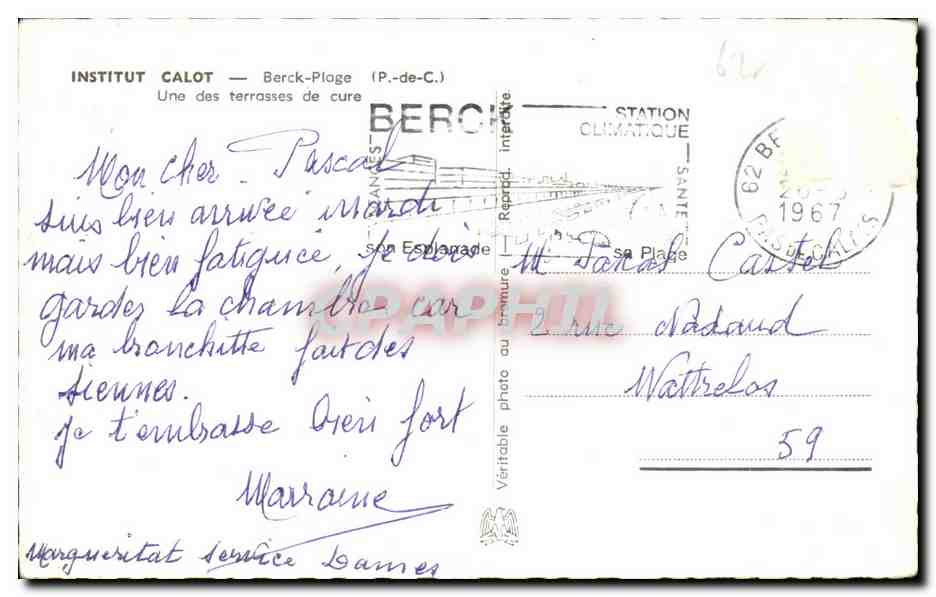 INSTITUT CALOT — Berck-Plage (P.-de-C.)
Une des terrasses de cure
Mon cher Pascal
suis bien arrivée mardi
mais bien fatiguée, je dois
garder la chambre car
ma bronchitte fait des
siennes.
je t'embrasse bien fort
Marraine
Margueritat service Dames
Véritable photo au bromure | Reprod. interdite
62
BERCK
STATION
CLIMATIQUE
VACANCES
SANTE
son Esplanade
sa Plage
62 BE
1967
PAS DE CALAIS
M Pascal Castel
2 rue Nadaud
Wattrelos
59
CPAPHIL